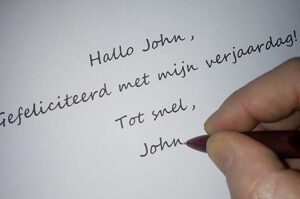 Hallo John,
Gefeliciteerd met mijn verjaardag!
Tot snel,
John